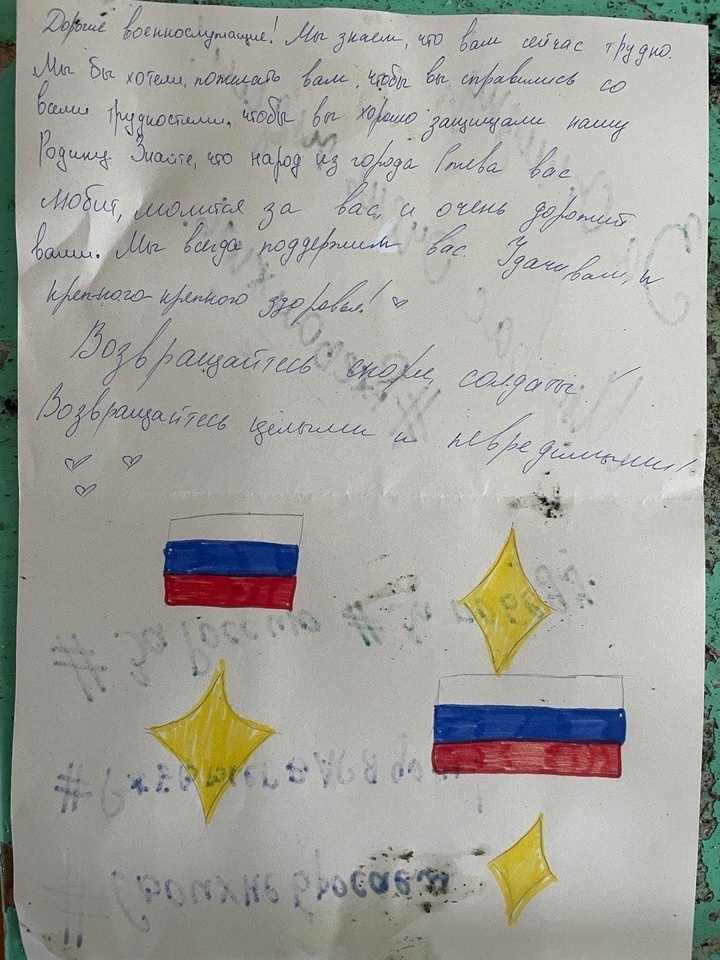 Дорогие военнослужащие! Мы знаем, что вам сейчас трудно.
Мы бы хотели, пожелать вам, чтобы вы справились со
всеми трудностями, чтобы вы хорошо защищали нашу
Родину. Знайте, что народ из города Ртва вас
любит, молится за вас, и очень дорожит
вами. Мы всегда поддержим вас. Удачи вам, и
крепкого-крепкого здоровья!
Возвращайтесь скорее, солдаты!
Возвращайтесь целыми и невредимыми!
# За Россию # За победу
#
# Своих не бросаем